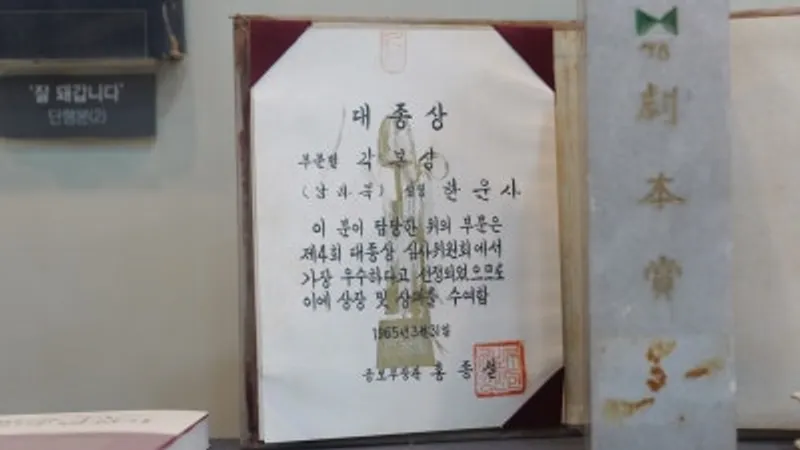 '잘 돼갑니다'
단행본(2)
대종상
부문별 각본상
(남과북) 성명 한운사
이 분이 담당한 위의 부분은
제4회 대종상 심사위원회에서
가장 우수하다고 선정되었으므로
이에 상장 및 상패를 수여함
1965년3월31일
공보부장관 홍종철
劇
本
賞